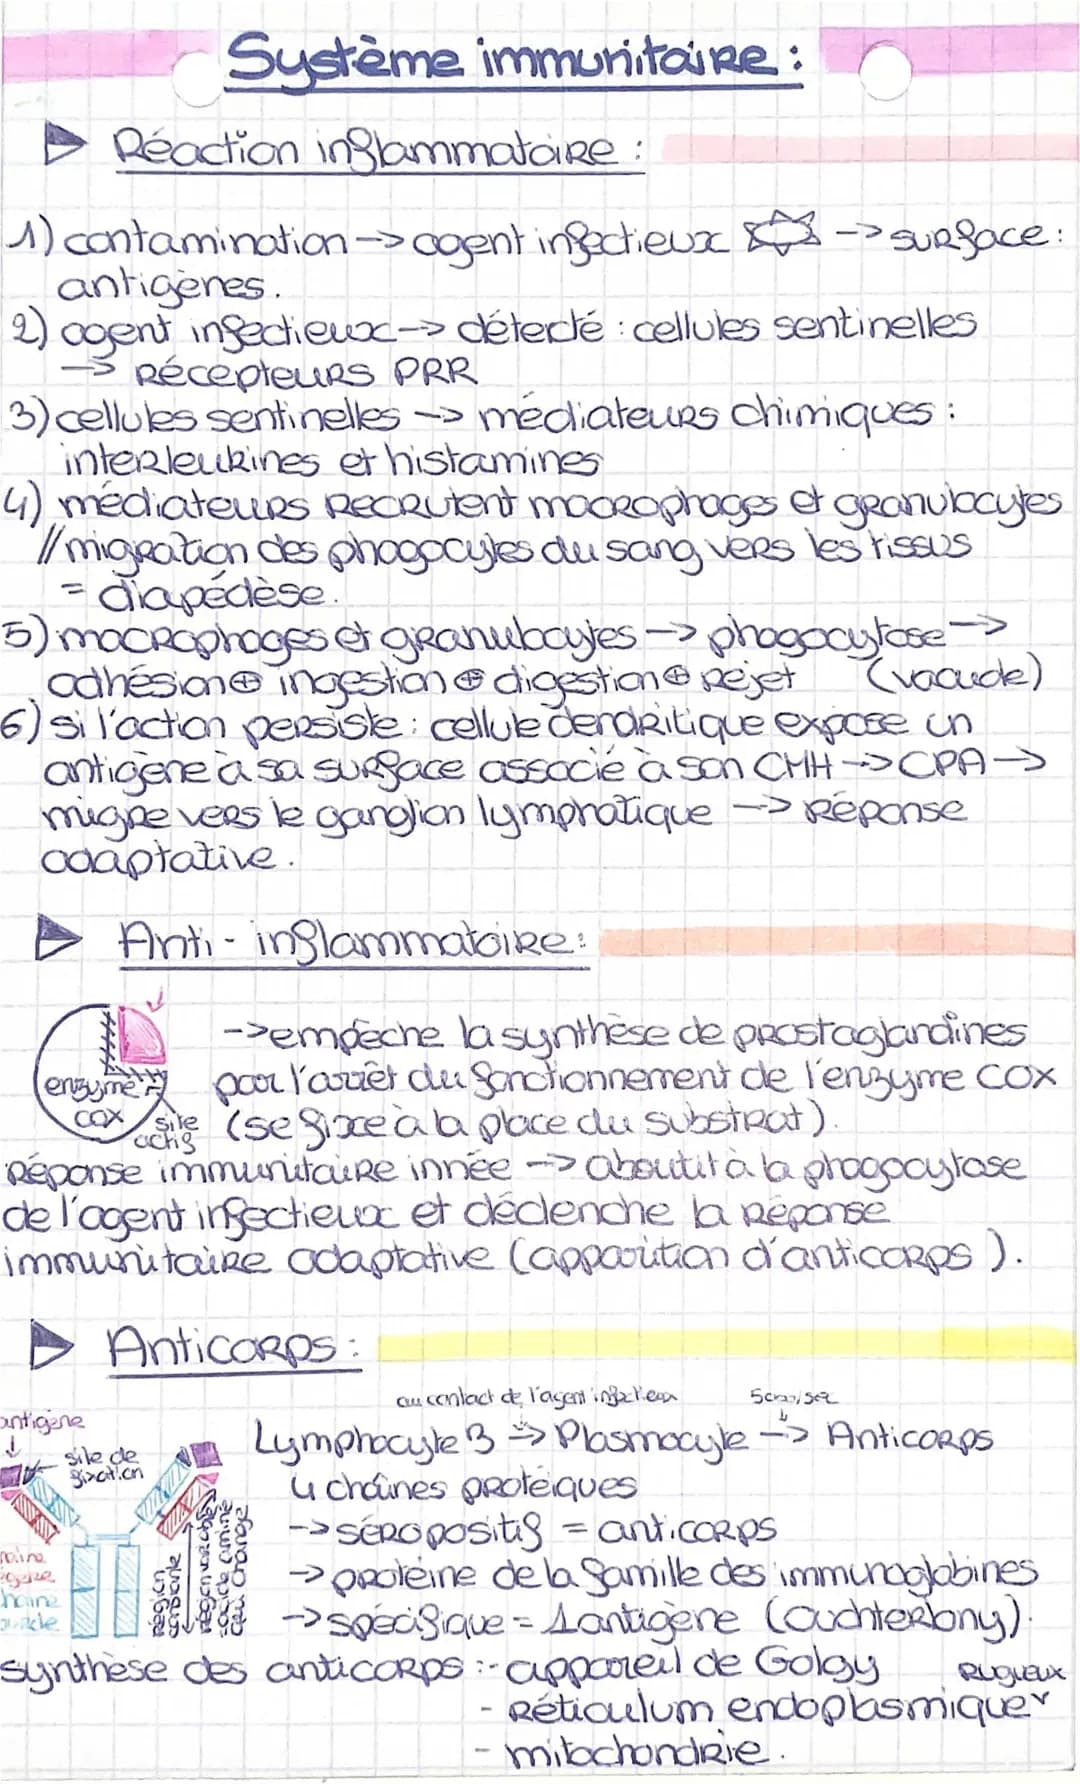 Système immunitaire :
Réaction inflammatoire :
1) contamination -> agent infectieux -> surface :
antigènes.
2) agent infectieux -> détecté : cellules sentinelles
-> récepteurs PRR
3) cellules sentinelles -> médiateurs chimiques :
interleukines et histamines
4) médiateurs recrutent macrophages et granulocytes
// migration des phagocytes du sang vers les tissus
= diapédèse.
5) macrophages et granulocytes -> phagocytose ->
adhésion ⊕ ingestion ⊕ digestion ⊕ rejet (vacuole)
6) si l'action persiste : cellule dendritique expose un
antigène à sa surface associé à son CMH -> CPA ->
migre vers le ganglion lymphatique -> réponse
adaptative.
Anti-inflammatoire :
enzyme
cox
site
actif
-> empêche la synthèse de prostaglandines
par l'arrêt du fonctionnement de l'enzyme COX
(se fixe à la place du substrat).
Réponse immunitaire innée -> aboutit à la phagocytose
de l'agent infectieux et déclenche la réponse
immunitaire adaptative (apparition d'anticorps).
Anticorps :
antigène
site de
fixation
région
constante
région variable
acide aminé
qui change
au contact de l'agent infectieux
Lymphocyte B -> Plasmocyte -> Anticorps
4 chaînes protéiques
-> séropositif = anticorps
-> protéine de la famille des immunoglobines
-> spécifique = 1 antigène (ouchterlony).
synthèse des anticorps : - appareil de Golgy
- Réticulum endoplasmique rugueux
- mitochondrie.